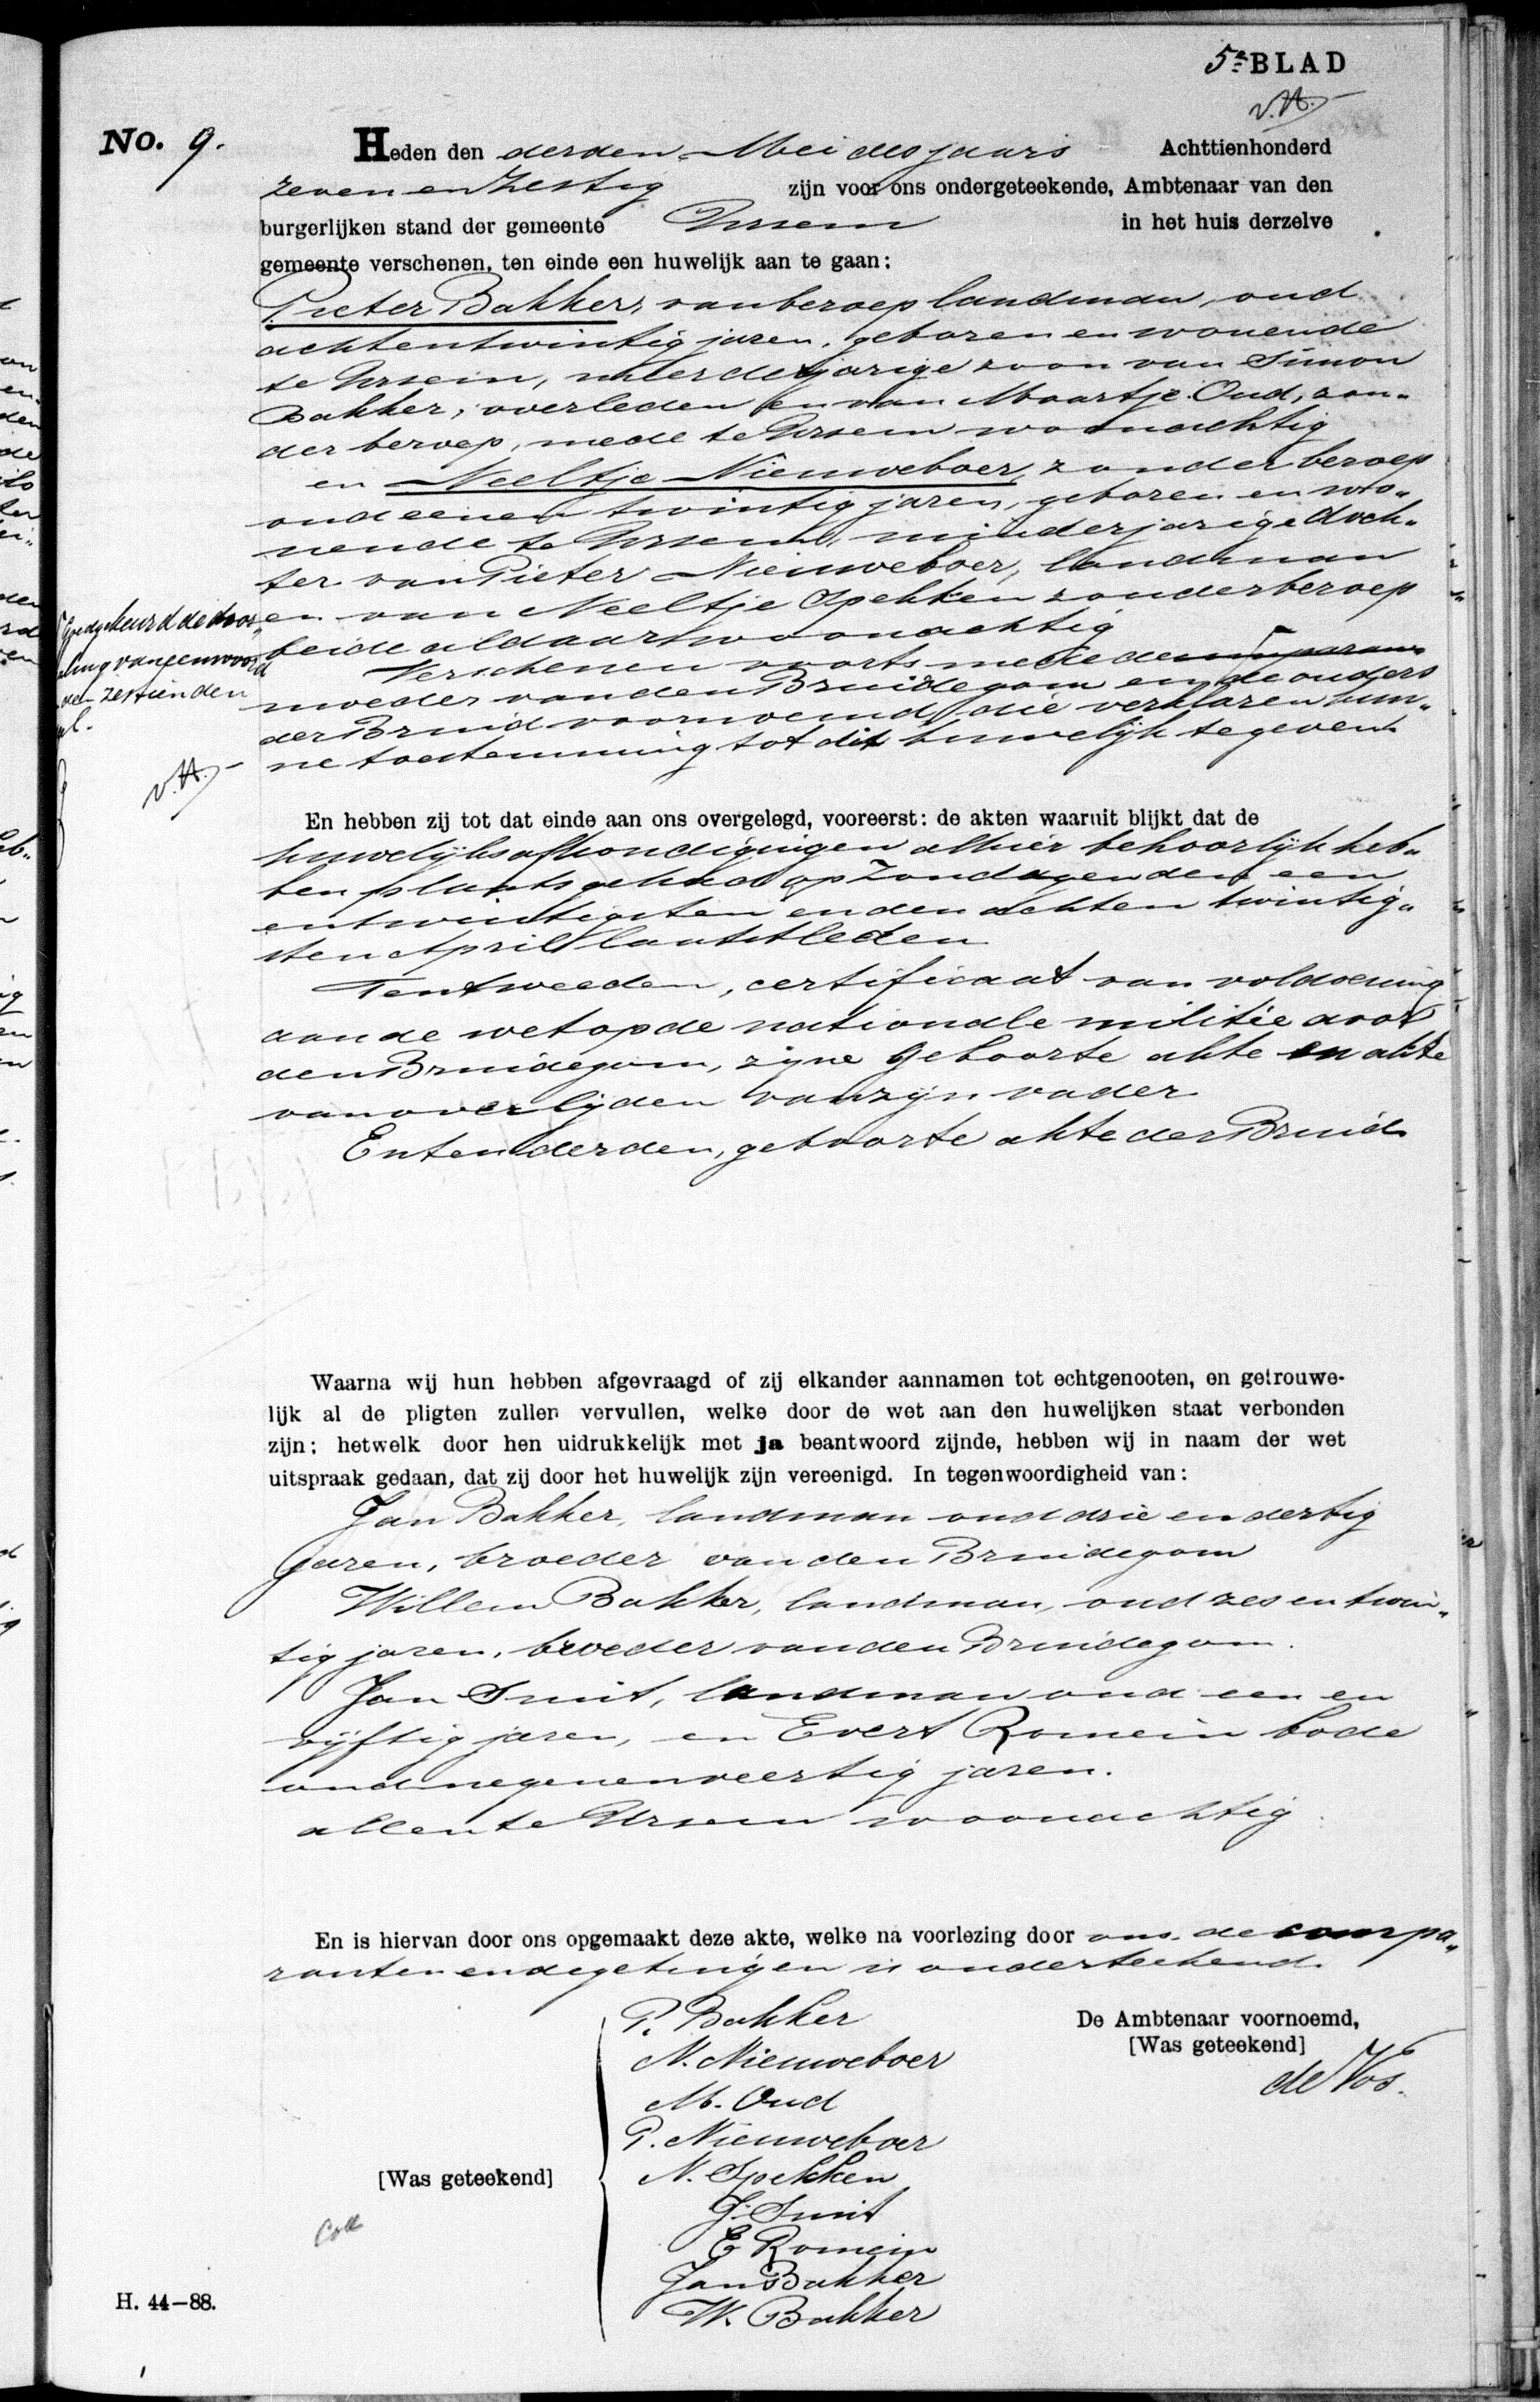 5e BLAD
v.A.
No. 9.
Heden den derden Mei des jaars Achttienhonderd
zeven en zestig zijn voor ons ondergeteekende, Ambtenaar van den
burgerlijken stand der gemeente Ursem in het huis derzelve
gemeente verschenen, ten einde een huwelijk aan te gaan:
Pieter Bakker, van beroep landman, oud
achtentwintig jaren, geboren en wonende
te Ursem, meerderjarige zoon van Simon
Bakker, overleden en van Maartje Oud, zon„
der beroep, mede te Ursem woonachtig
en Neeltje Nieuweboer, zonder beroep
oud eenen twintig jaren, geboren en wo„
nende te Ursem, minderjarige doch„
ter van Pieter Nieuweboer, landman
en van Neeltje Spekken zonder beroep
beide aldaar woonachtig
Verschenen voorts mede de
moeder van den Bruidegom en de ouders
der Bruid voornoemd, die verklaren hun„
ne toestemming tot dit huwelijk te geven
Goedgekeurd de door„
haling van een woord
den zestienden
v.A.
En hebben zij tot dat einde aan ons overgelegd, vooreerst: de akten waaruit blijkt dat de
huwelijksafkondigingen alhier behoorlijk heb„
ben plaats gehad op Zondagen den een
entwintigsten en den achten twintig„
sten April laatstleden
Ten tweeden, certificaat van voldoening
aan de wet op de nationale militie door
den Bruidegom, zijne geboorte akte en akte
van overlijden van zijn vader
En ten derden, geboorte akte der Bruid
Waarna wij hun hebben afgevraagd of zij elkander aannamen tot echtgenooten, en getrouwe-
lijk al de pligten zullen vervullen, welke door de wet aan den huwelijken staat verbonden
zijn; hetwelk door hen uidrukkelijk met ja beantwoord zijnde, hebben wij in naam der wet
uitspraak gedaan, dat zij door het huwelijk zijn vereenigd. In tegenwoordigheid van:
Jan Bakker, landman oud drie en dertig
jaren, broeder van den Bruidegom
Willem Bakker, landman, oud zes en twin„
tig jaren, broeder van den Bruidegom.
Jan Smit, landman oud een en
vijftig jaren, en Evert Romein bode
oud negenenveertig jaren.
allen te Ursem woonachtig
En is hiervan door ons opgemaakt deze akte, welke na voorlezing door ons, de compa„
ranten en de getuigen is onderteekend.
P. Bakker
N. Nieuweboer
M. Oud
P. Nieuweboer
[Was geteekend] N. Spekken
J. Smit
E Romein
Jan Bakker
W. Bakker
De Ambtenaar voornoemd,
[Was geteekend]
de Vos.
Coll
H. 44-88.